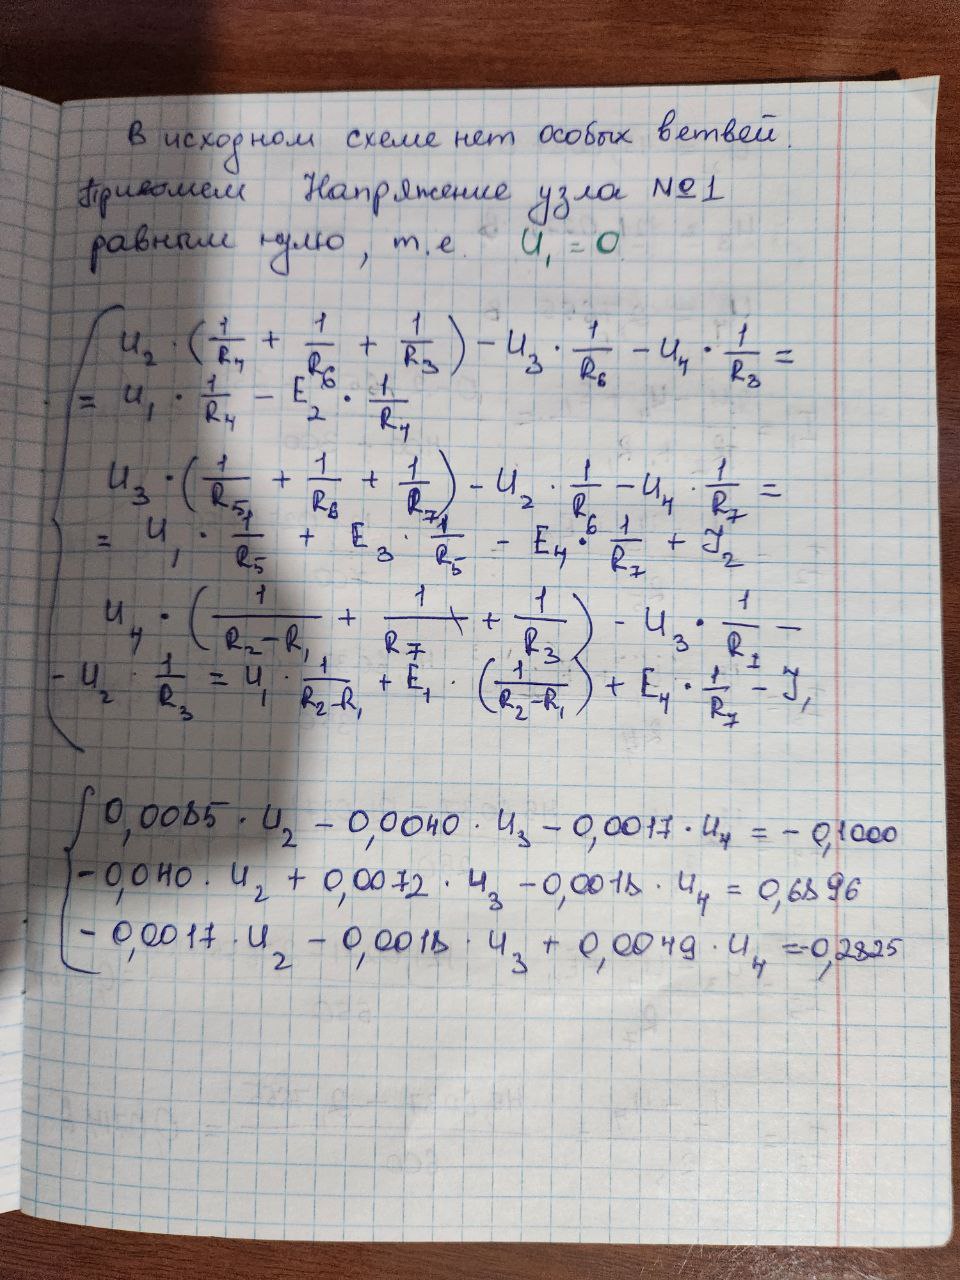 В исходном схеме нет особых ветвей.
Примем Напряжение узла №1
равным нулю, т.е. U₁ = 0
U₂ · (1/R₄ + 1/R₆ + 1/R₃) − U₃ · 1/R₆ − U₄ · 1/R₃ =
= U₁ · 1/R₄ − E₂ · 1/R₄
U₃ · (1/R₅ + 1/R₆ + 1/R₇) − U₂ · 1/R₆ − U₄ · 1/R₇ =
= U₁ · 1/R₅ + E₃ · 1/R₅ − E₄ · 1/R₇ + J₂
U₄ · (1/(R₂−R₁) + 1/R₇ + 1/R₃) − U₃ · 1/R₇ −
− U₂ · 1/R₃ = U₁ · 1/(R₂−R₁) + E₁ · (1/(R₂−R₁)) + E₄ · 1/R₇ − J₁
0,0085 · U₂ − 0,0040 · U₃ − 0,0017 · U₄ = −0,1000
−0,040 · U₂ + 0,0072 · U₃ − 0,0018 · U₄ = 0,6896
−0,0017 · U₂ − 0,0018 · U₃ + 0,0049 · U₄ = −0,2825